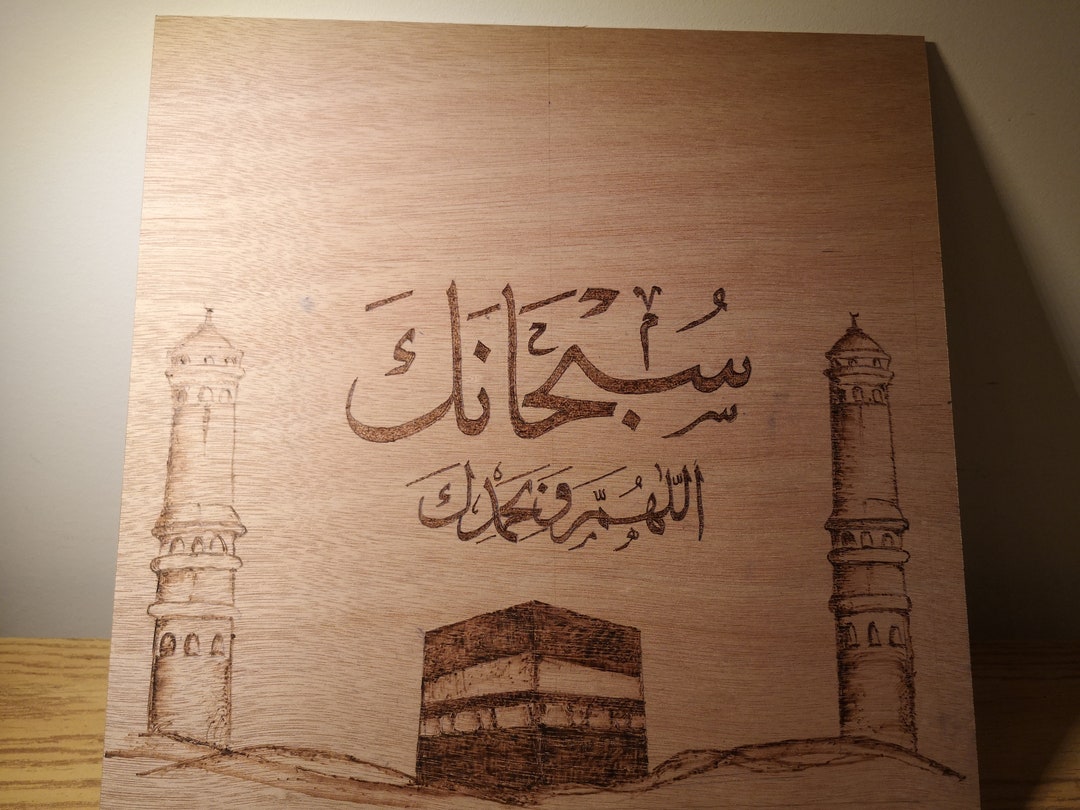 سُبْحَانَكَ
اللّٰهُمَّ وَنَحْمَدِكَ